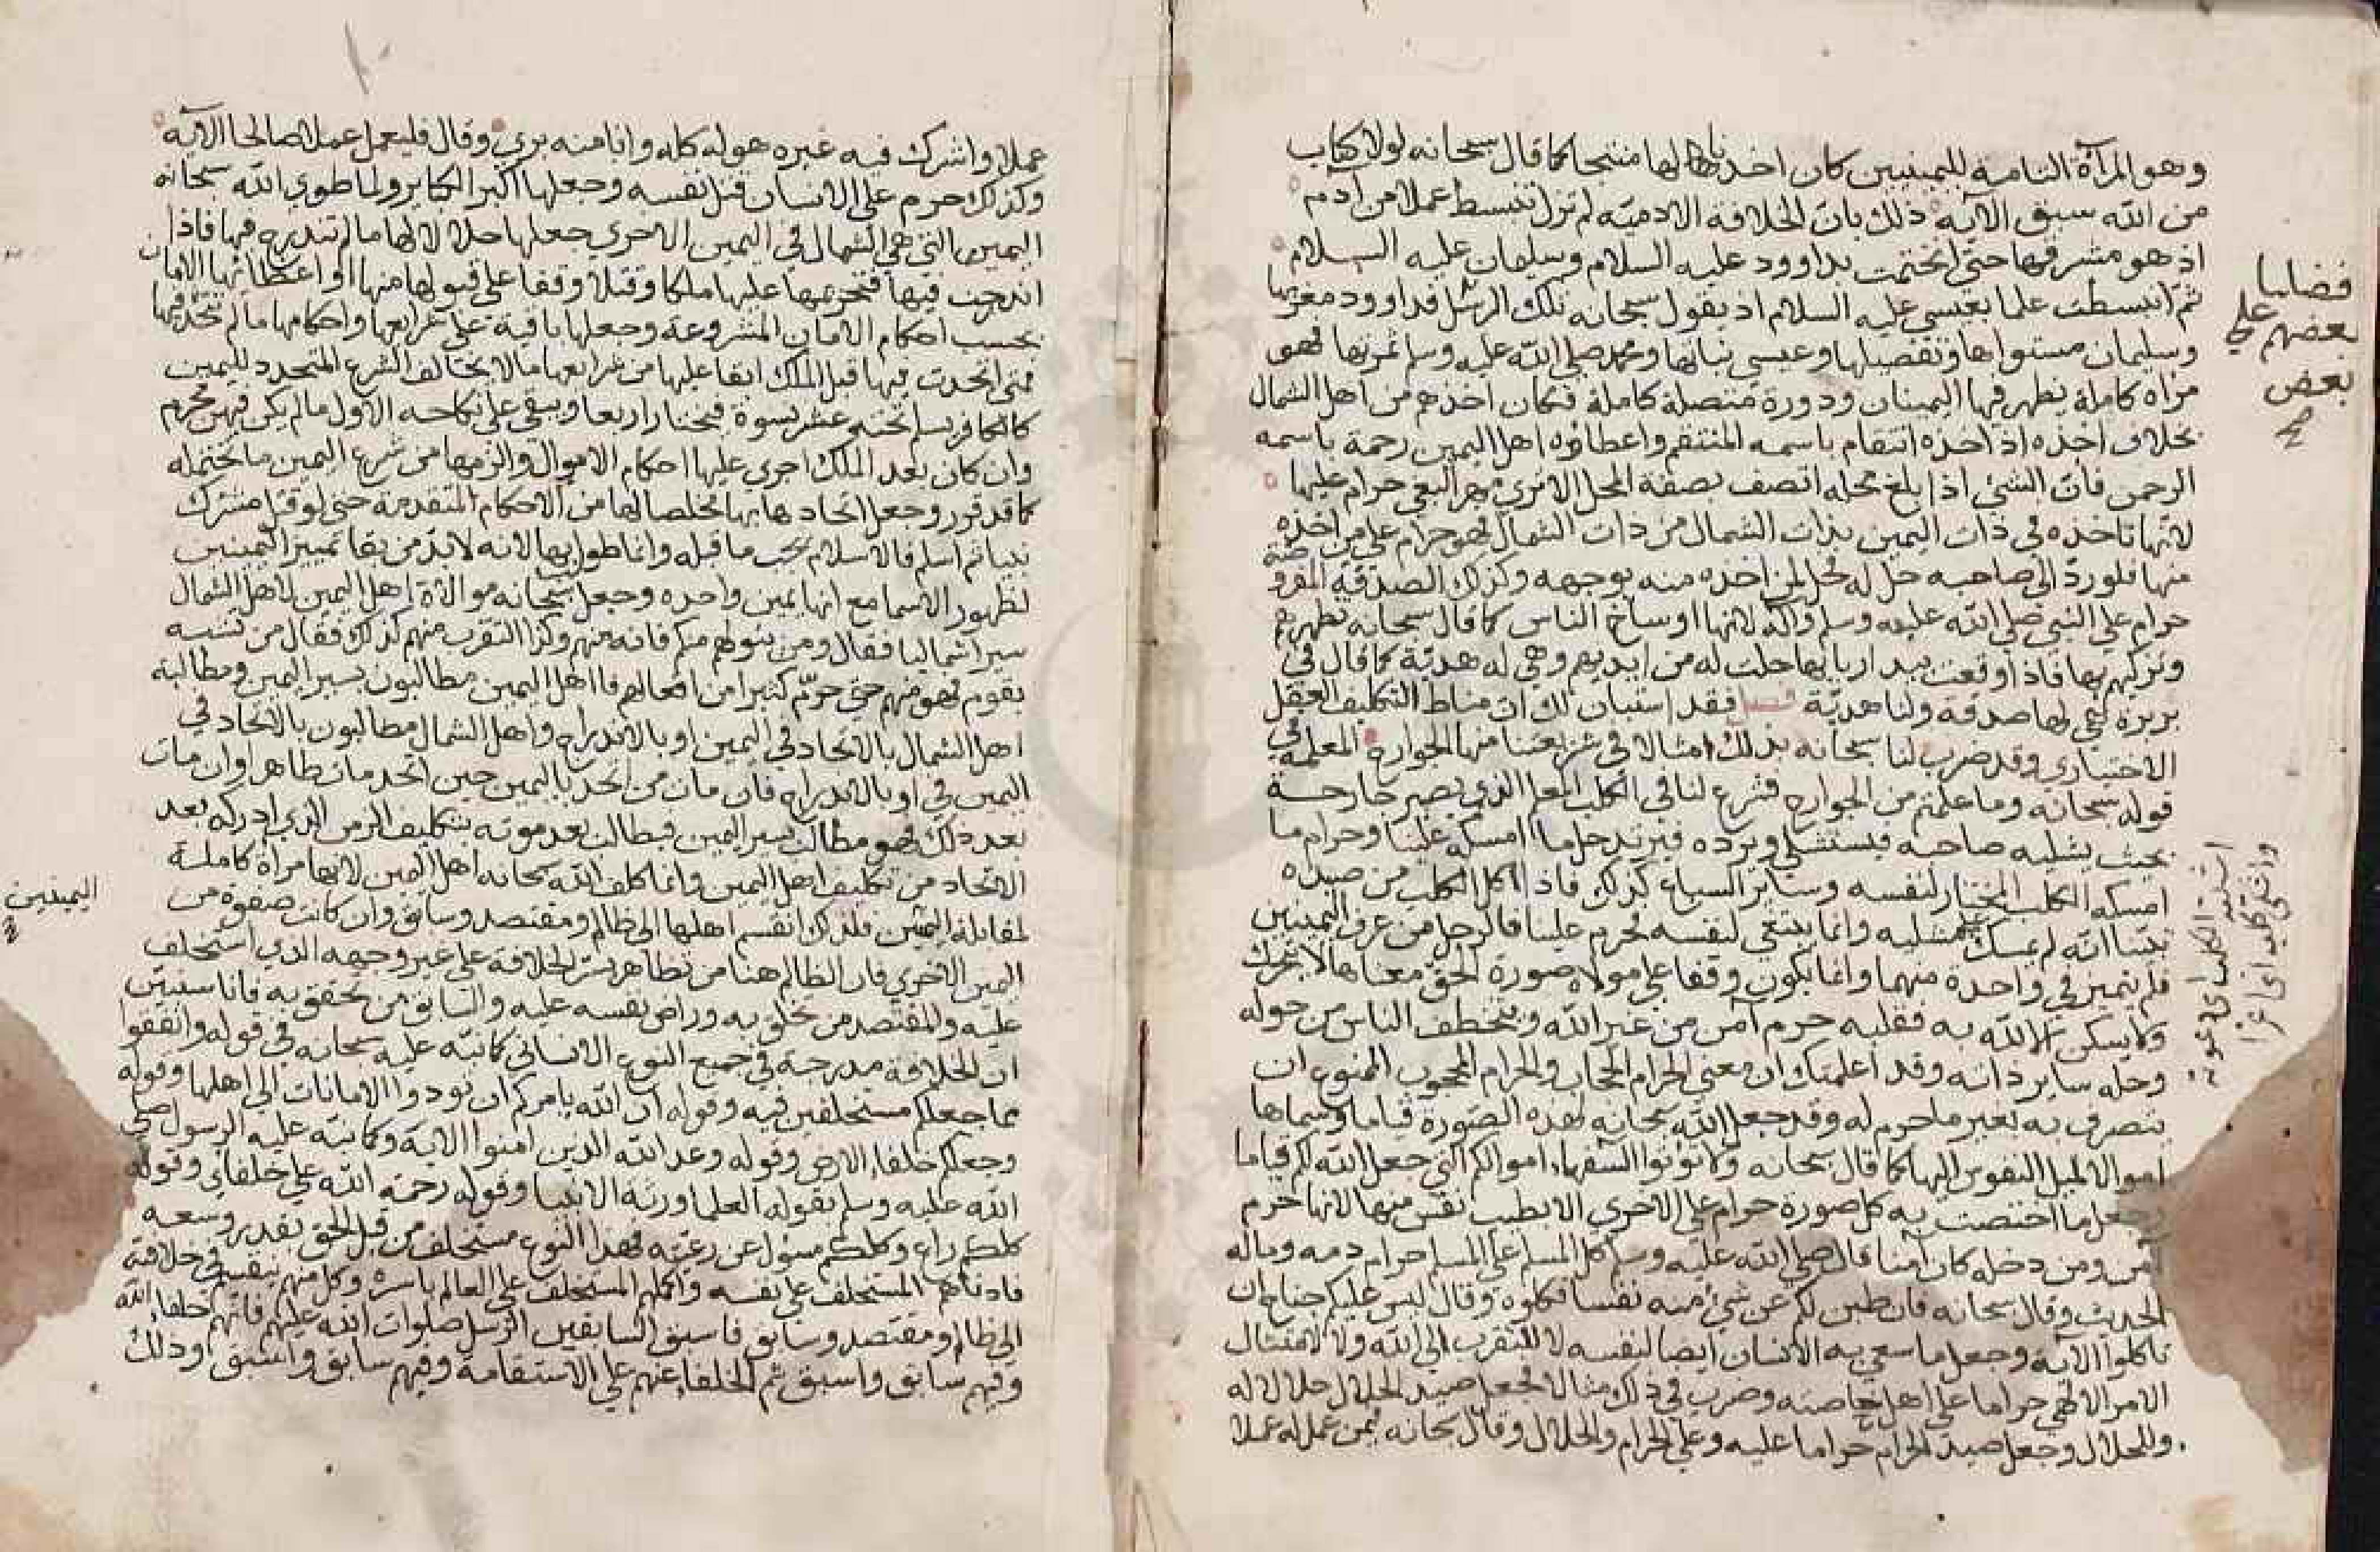 وهو المرآة التامة لليمينيين كان اخذنا لها منتجا كما قال سبحانه لولا كتاب
من الله سبق الآيه ذلك بان الخلافة الادميّه لم تزل تنبسط عملا من آدم
اذ هو مشرقها حتى اختتمت بداوود عليه السلام وسليمان عليه السلام
ثم انبسطت علما بعيسى عليه السلام اذ يقول سبحانه تلك الرسل فداوود مغربها
وسليمان مستواها وتفصيلها وعيسى نباتها ومحمد صلى الله عليه وسلم ثمرتها فهو
مراه كاملة يظهر فيها اليمينان ودورة متصلة كاملة فكان اخذهم من اهل الشمال
بخلاف اخذه اذ اخذه انتقام باسمه المنتقم واعطاؤه اهل اليمين رحمة باسمه
الرحمن فان الشئ اذا بلغ محله اتصف بصفة المحل الا ترى مهر البغي حرام عليها
لانها تاخذه في ذات اليمين بذات الشمال من ذات الشمال فهو حرام على من اخذه
منها فلو ردّ الى صاحبه حل له حل لمن اخذه منه بوجهه وكذلك الصدقة المفروضة
حرام على النبي صلى الله عليه وسلم وآله لانها اوساخ الناس كما قال سبحانه تطهرهم
وتزكيهم بها فاذا وقعت بيد اربابها حلت له من ايديهم وهي له هديّة كما قال في
بريرة هي لها صدقة ولنا هديّة فصل فقد استبان لك ان مناط التكليف العقل
الاختياري وقد ضرب لنا سبحانه بذلك امثالا في شريعتنا منها الجوارح المعلمة في
قوله سبحانه وما علمتم من الجوارح فشرع لنا في الكلب المعلم الذي يصير جارحة
بحيث يشليه صاحبه فيستشلي ويرده فيرتد حل ما امسكه علينا وحرام ما
امسكه الكلب المختار لنفسه وسائر السباع كذلك فاذا اكل الكلب من صيده
تبينا انه لم يمسك لمشليه وانما يبتغي لنفسه فحرم علينا فالرجل من عرف اليمينين
فلم يتميز في واحدة منهما وانما يكون وقفا على مولاه صورة الحق معناها لا يتحرك
ولا يسكن الا لله به فقلبه حرم آمن من غير الله ويتخطف الناس من حوله
وحله سائر ذاته وقد اعلمتك ان معنى الحرام الحجاب والحرام المحجوب الممنوع ان
يتصرف به بغير ما حرم له وقد جعل الله سبحانه لهذه الصورة قياما وسماها
اموالا لميل النفوس اليها كما قال سبحانه ولا تؤتوا السفهاء اموالكم التي جعل الله لكم قياما
وجعل ما اختصت به كل صورة حرام على الاخرى الا بطيب نفس منها لانها حرم
آمن ومن دخله كان آمنا قال صلى الله عليه وسلم كل المسلم على المسلم حرام دمه وماله
الحديث وقال سبحانه فان طبن لكم عن شيء منه نفسا فكلوه وقال ليس عليكم جناح ان
تاكلوا الآية وجعل ما سعى به الانسان ايضا لنفسه لا للتقرب الى الله ولا لامتثال
الامر الالهي حراما على اهل خاصته وضرب في ذلك مثالا فجعل صيد الحلال حلالا له
وللحلال وجعل صيد الحرام حراما عليه وعلى الحرام والحلال وقال سبحانه فيمن عمل له عملا
فضلنا
بعضهم على
بعض
عملا واشرك فيه غيره هو له كله وانا منه بري وقال فليعمل عملا صالحا الآيه
وكذلك حرم على الانسان قتل نفسه وجعلها اكبر الكبائر ولما طوى الله سبحانه
اليمين التي هي الشمال في اليمين الاخرى جعلها حلالا لها ما لم تندرج فيها فاذا
اندرجت فيها فتحريمها عليها ملكا وقتلا وقفا على قبولها منها او اعطائها الامان
بحسب احكام الامان المشروعة وجعلها باقية على شرايعها واحكامها ما لم تتحد فيها
فمتى اتحدت فيها قبل الملك ابقا عليها من شرايعها ما لا يخالف الشرع المتحدد لليمين
كالكافر يسلم تحته عشر نسوة فيختار اربعا ويبقى على نكاحه الاول ما لم يكن فيهن محرم
وان كان بعد الملك اجرى عليها احكام الاموال والزمها من شرع اليمين ما تحتمله
كما قد قرر وجعل اتحادها بها مخلصا لها من الاحكام المتقدمة حتى لو قتل مشرك
نبيا ثم اسلم فالاسلام يجب ما قبله وانما طولب بها لانه لا بد من بقا تمييز اليمينين
لظهور الاسما مع انها يمين واحده وجعل سبحانه موالاة اهل اليمين لاهل الشمال
سيرا شماليا فقال ومن يتولهم منكم فانه منهم وكذا التقرب منهم كذلك فقال من تشبه
بقوم فهو منهم حتى حرّم كثيرا من افعالهم فاهل اليمين مطالبون بسير اليمين ومطالبة
اهل الشمال بالاتحاد في اليمين او بالاندراج واهل الشمال مطالبون بالاتحاد في
اليمين او بالاندراج فان مات من اتحد باليمين حين اتحد مات طاهرا وان مات
بعد ذلك فهو مطالب بسير اليمين فيطالب بعد موته بتكليف الزمن الذي ادركه بعد
الاتحاد من تكليف اهل اليمين وانما كلف الله سبحانه اهل اليمين لانها مراة كاملة
لمقابلة اليمين فلذلك انقسم اهلها الى ظالم ومقتصد وسابق وان كانت صفوة من
اليمين الاخرى فان الظالم هنا من تظاهر بستر الخلافة على غير وجهه الذي استخلف
عليه والمقتصد من تخلق به وراض نفسه عليه والسابق من تحقق به فانا سنبين
ان الخلافة مدرجة في جميع النوع الانساني كما نبّه عليه سبحانه في قوله وانفقوا
مما جعلكم مستخلفين فيه وقوله ان الله يامركم ان تودوا الامانات الى اهلها وقوله
وجعلكم خلفاء الارض وقوله وعد الله الذين امنوا الاية وكما نبّه عليه الرسول صلى
الله عليه وسلم بقوله العلما ورثة الانبيا وقوله رحمة الله على خلفاي وقوله
كلكم راع وكلكم مسئول عن رعيّته فهذا النوع مستخلف من قبل الحق بقدر وسعه
فادناهم المستخلف على نفسه واكملهم المستخلف على العالم باسره وكل منهم ينقسم في خلافته
الى ظالم ومقتصد وسابق فاسبق السابقين الرسل صلوات الله عليهم فانهم خلفاء الله
وفيهم سابق واسبق ثم الخلفاء عنهم على الاستقامة وفيهم سابق واسبق وذلك
اليمينين